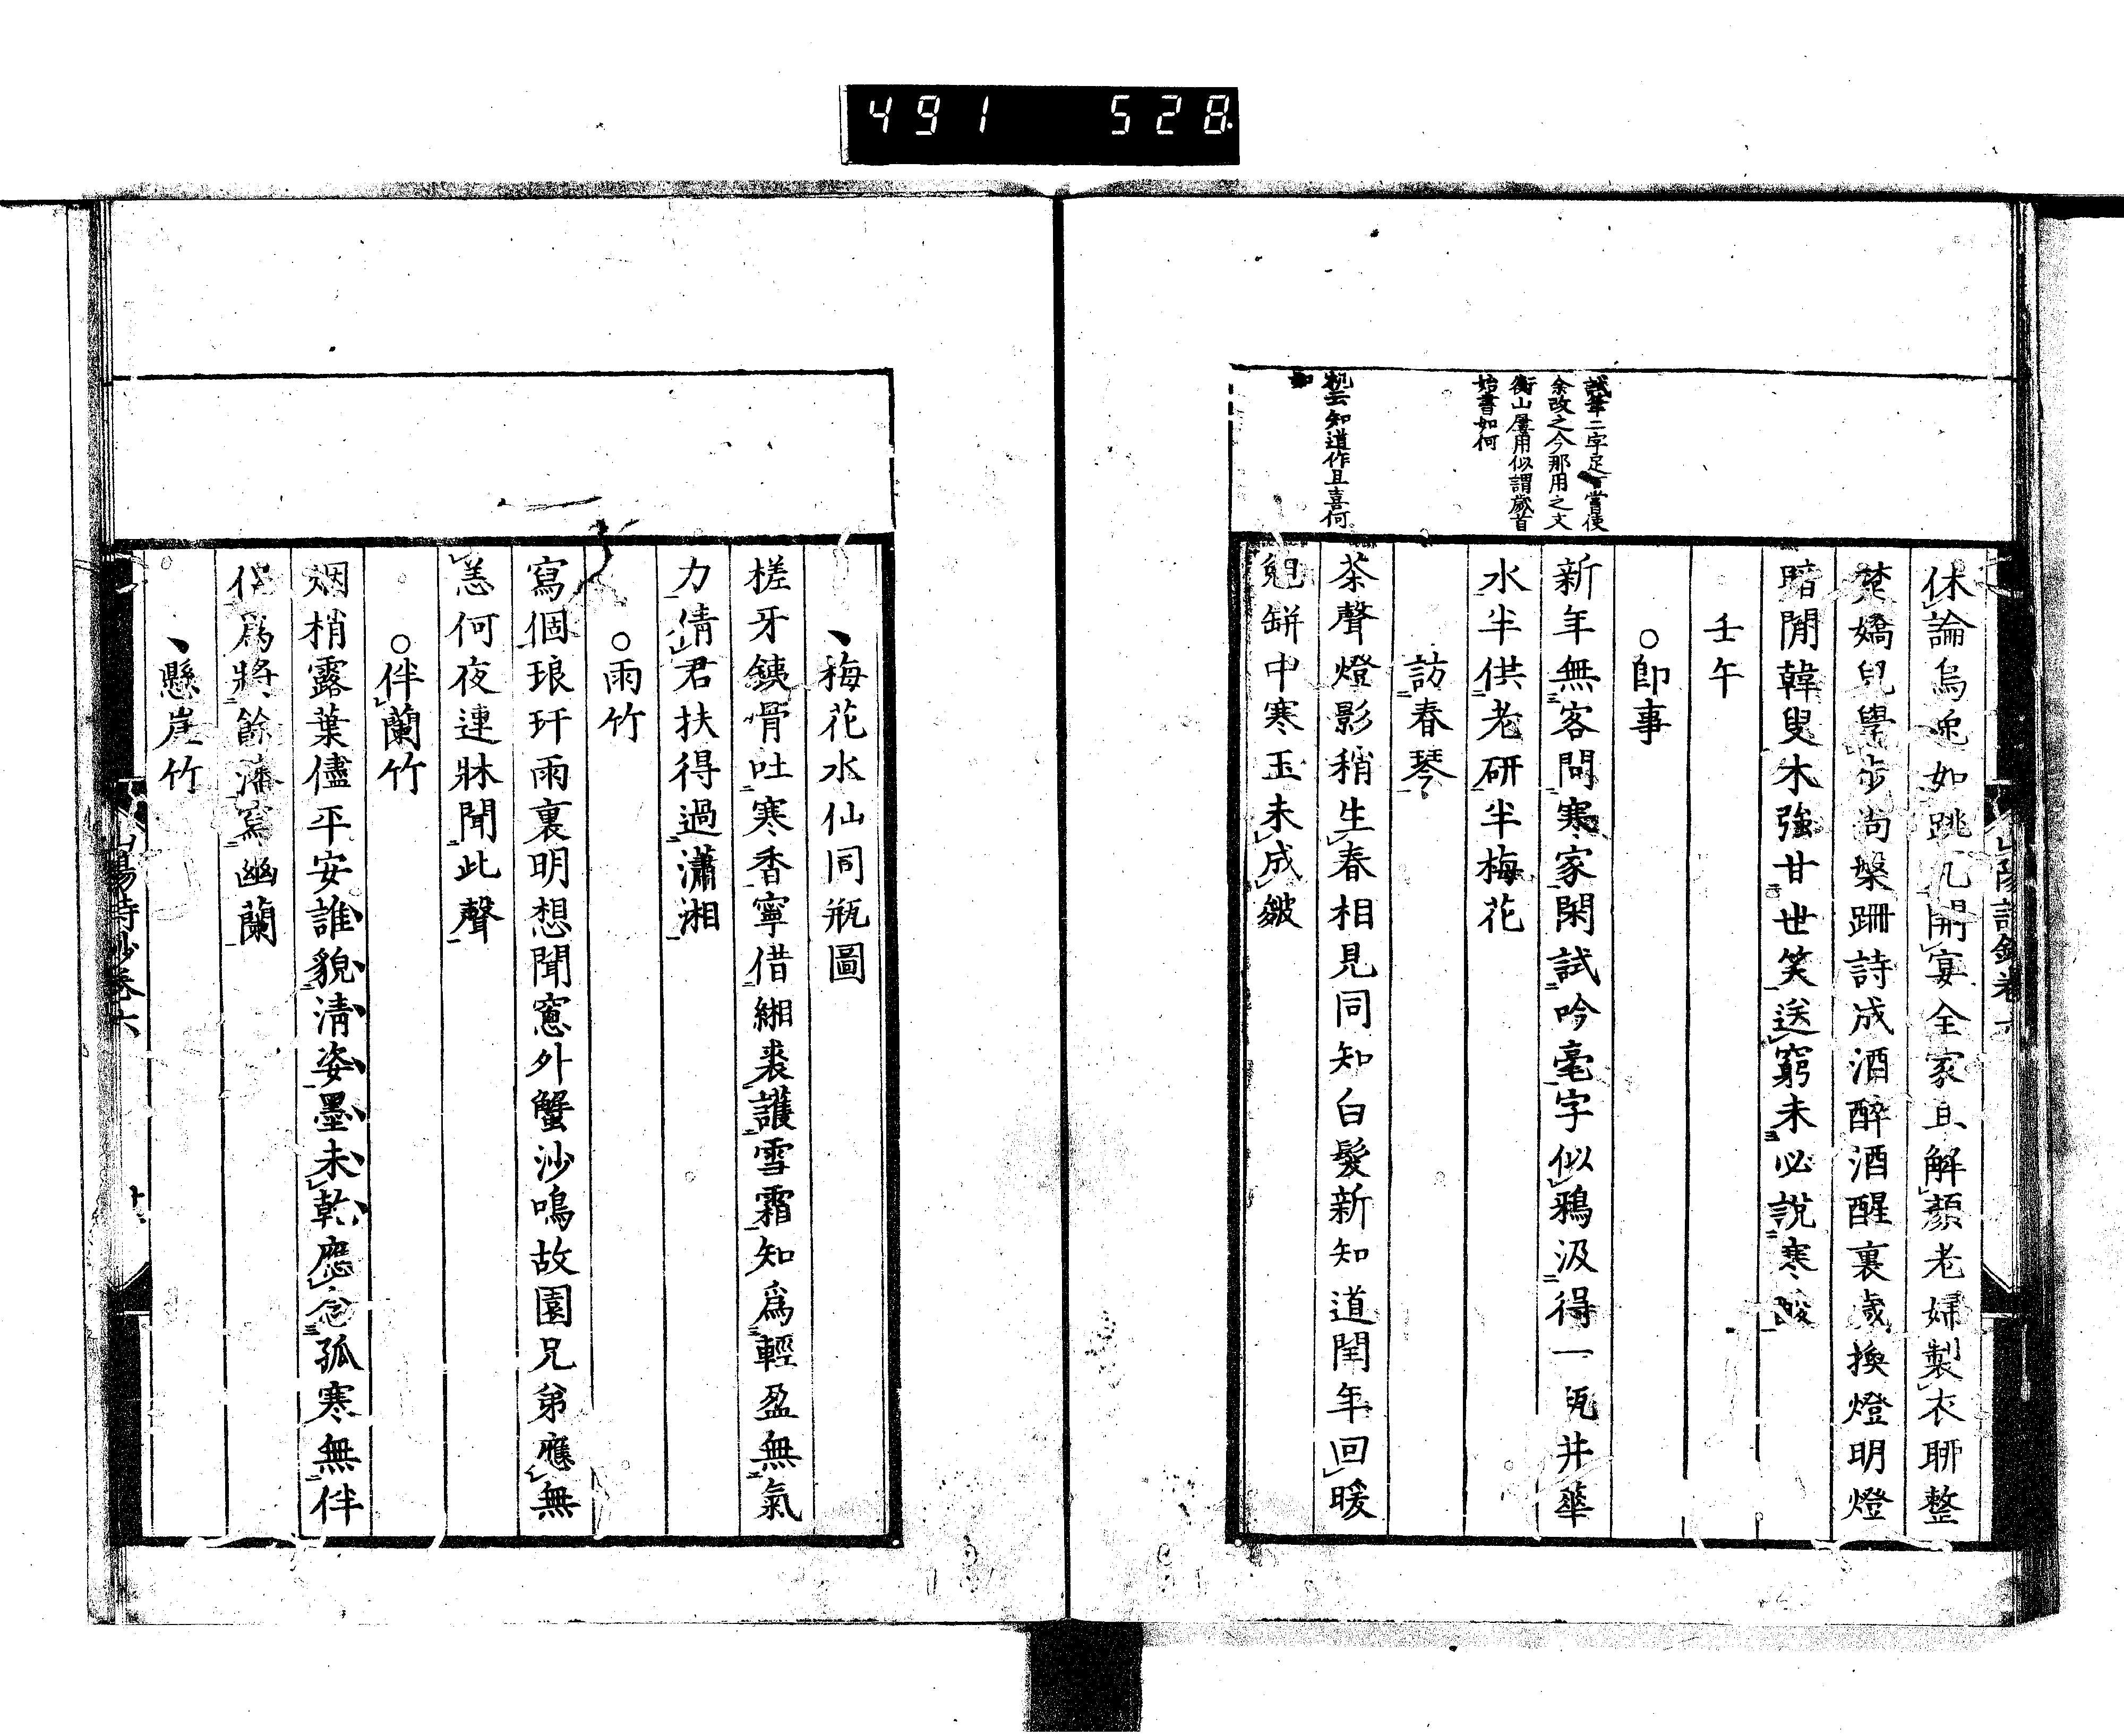 491 528
試筆二字足
余改之今那用之文
衡山屢用似謂歲首
始書如何
知道作且喜何
如
休論烏兎如跳丸開宴全家且解顏老婦製衣聊整
楚嬌兒學步尚槃跚詩成酒醉酒醒裏歲換燈明燈
暗閒韓叟木強甘世笑送窮未必說寒酸
壬午
○卽事
新年無客問寒家閑試吟毫字似鴉汲得一瓶井華
水半供老研半梅花
訪春琴
茶聲燈影稍生春相見同知白髮新知道閏年回暖
缾中寒玉未成皴
山陽詩鈔卷六
梅花水仙同瓶圖
槎牙鐵骨吐寒香寧借緗裘護雪霜知爲輕盈無氣
力倩君扶得過瀟湘
○雨竹
寫個琅玕雨裏明想聞窻外蟹沙鳴故園兄弟應無
恙何夜連牀聞此聲
○伴蘭竹
烟梢露葉儘平安誰貌淸姿墨未乾應念孤寒無伴
侶爲將餘瀋寫幽蘭
懸崖竹
山陽詩鈔卷六